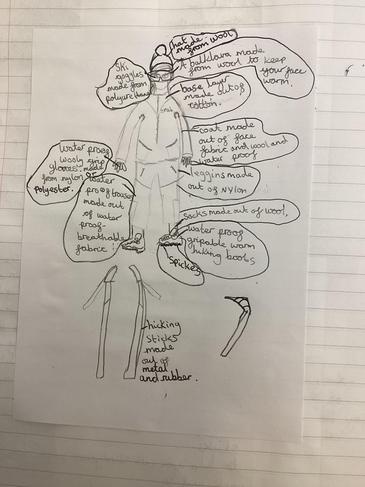 hat made
from wool
A balldava made
from wool to keep
your face
warm.
Ski
goggles
made from
polyurethane
base layer
made out of
cotton.
coat made
out of face
fabric and wool and
water proof
water proof
wooly grip
gloves made
from nylon or
polyester.
leggins made
out of nylon
water
proof trousers
made out
of water
proof-
breathable
fabric!
Socks made out of wool.
water proof
gripable warm
hiking boots
Spickes
hicking
Sticks
made
out of
metal
and rubber.